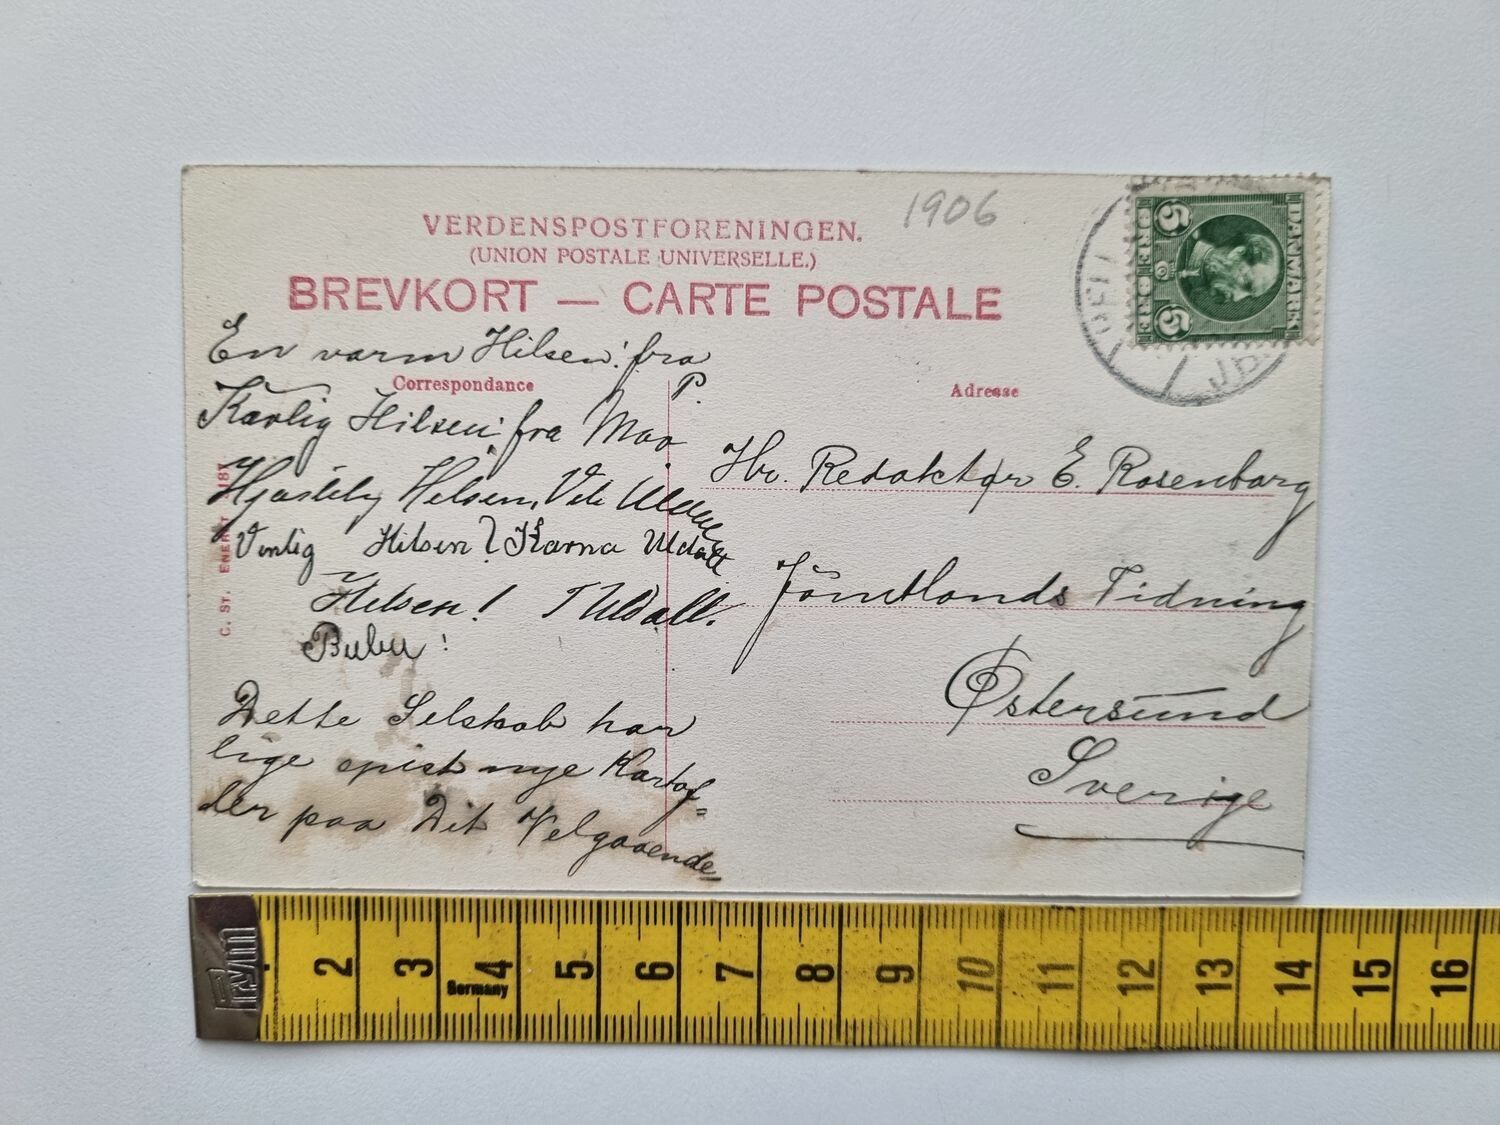 1906
VERDENSPOSTFORENINGEN.
(UNION POSTALE UNIVERSELLE.)
BREVKORT — CARTE POSTALE
DANMARK
5 5
ØRE ØRE
En varm Hilsen! fra
P.
Correspondance
Adresse
Kærlig Hilsen fra Moo
Hjærtelig Hilsen,
Venlig Hilsen Karna Uldall
Hilsen! T Uldall.
Bubu!
Dette Selskab har
lige spist nye Kartof=
ler paa Dit Velgaaende
Hr. Redaktør E. Rosenberg
Jämtlands Tidning
Østersund
Sverige
C. ST. ENERET 187.
Prym
Germany
2 3 4 5 6 7 8 9 10 11 12 13 14 15 16